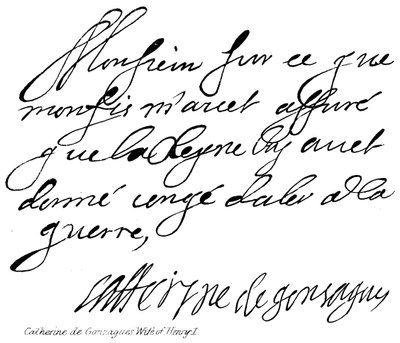 Monsieur sur ce que
mon fis m'avet assuré
que la Reyne luy avet
donné congé daler à la
guerre,
Catterine de gonsagues
Catherine de Gonzagues Wife of Henry I.